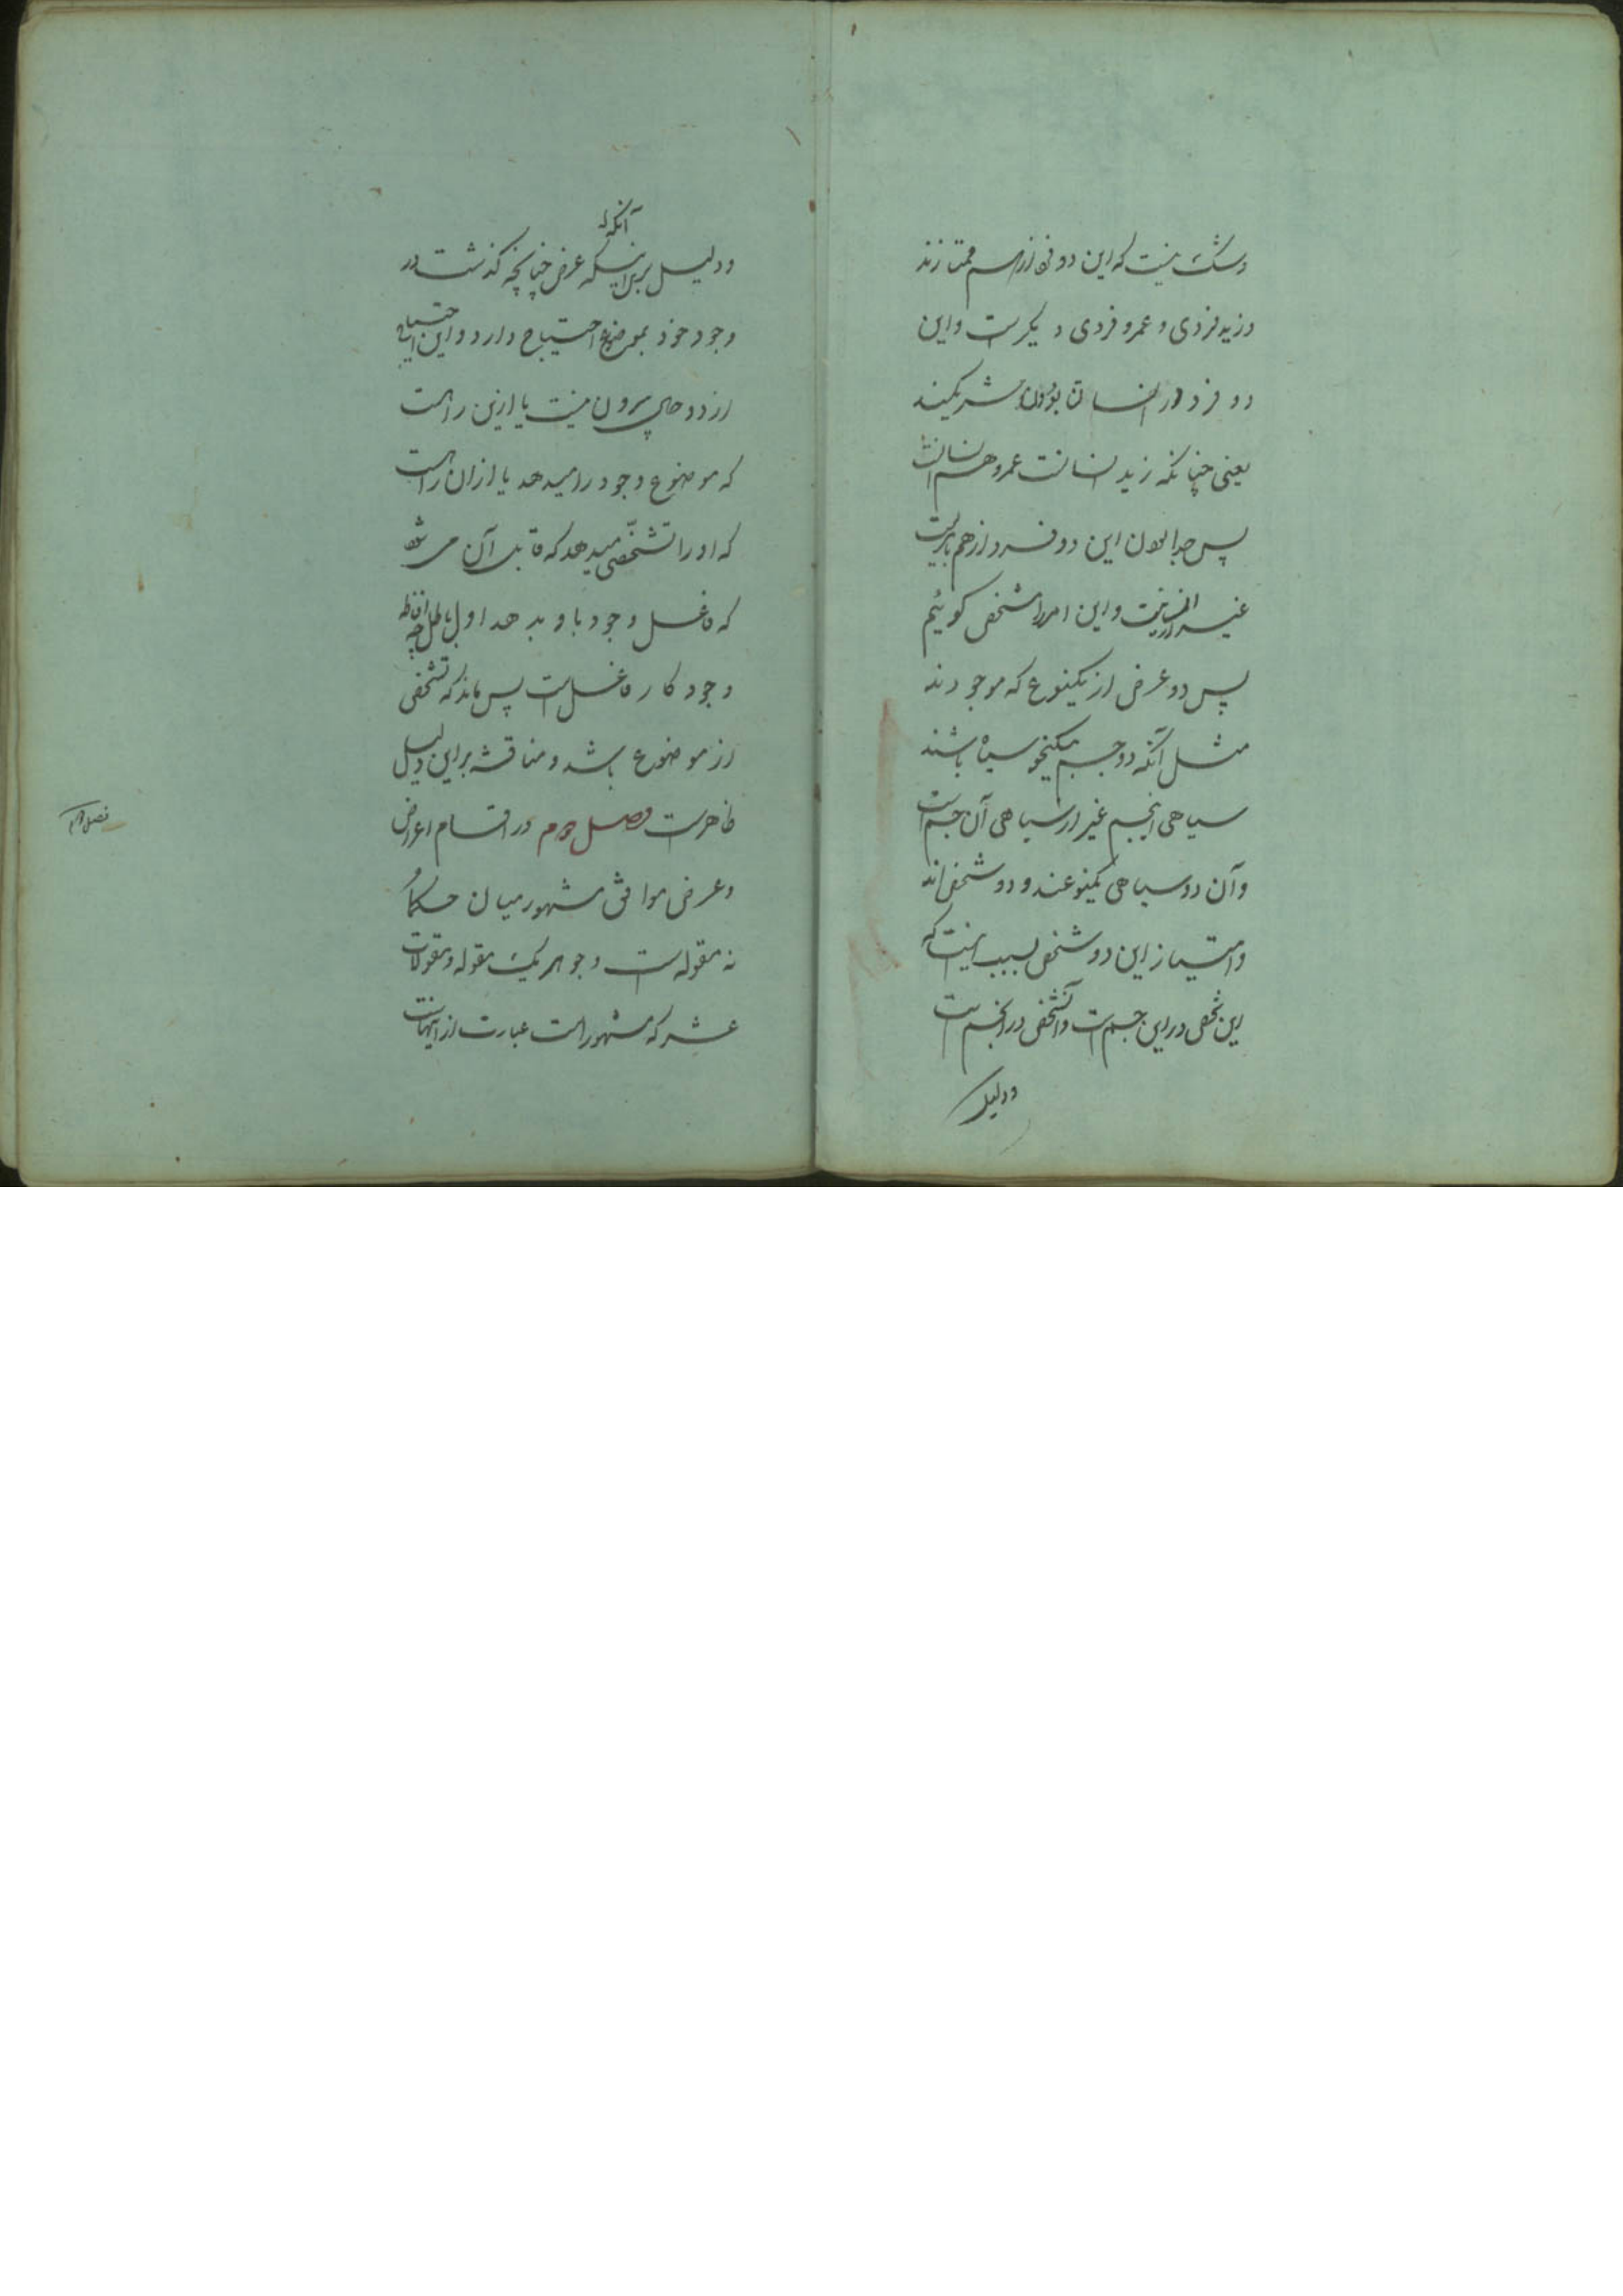 و شک نیست که این دو فرد از هم ممتازند
و زید فردی و عمرو فردی دیگرست و این
دو فرد در انسان بودن شریکند
یعنی چنانکه زید انسانست عمرو هم انسانست
پس جدا بودن این دو فرد از هم بامریست
غیر انسانیت و این امر را تشخص گوئیم
پس دو عرض از یکنوع که موجودند
مثل آنکه دو جسم بیکنحو سیاه باشند
سیاهی اینجسم غیر از سیاهی آن جسم است
و آن دو سیاهی یکنوعند و دو شخص اند
و امتیاز این دو شخص بسبب اینست که
این شخص در این جسم است و آنشخص در آنجسم است
و دلیل
آنکه
و دلیل بر اینکه عرض چنانچه گذشت در
وجود خود بموضوع احتیاج دارد و این احتیاج
از دو حال بیرون نیست یا ازین راهست
که موضوع وجود را میدهد یا از آن راهست
که او را تشخصی میدهد که قابل آن می شود
که فاعل وجود باو بدهد اول باطل است چه
وجود کار فاعل است پس ماند که تشخص
از موضوع باشد و مناقشه بر این دلیل
ظاهرست فصل دوم در اقسام اعراض
و عرض موافق مشهور میان حکما
نه مقوله است و جوهر یک مقوله و مقولات
عشر که مشهور است عبارت از اینهاست
فصل دوم